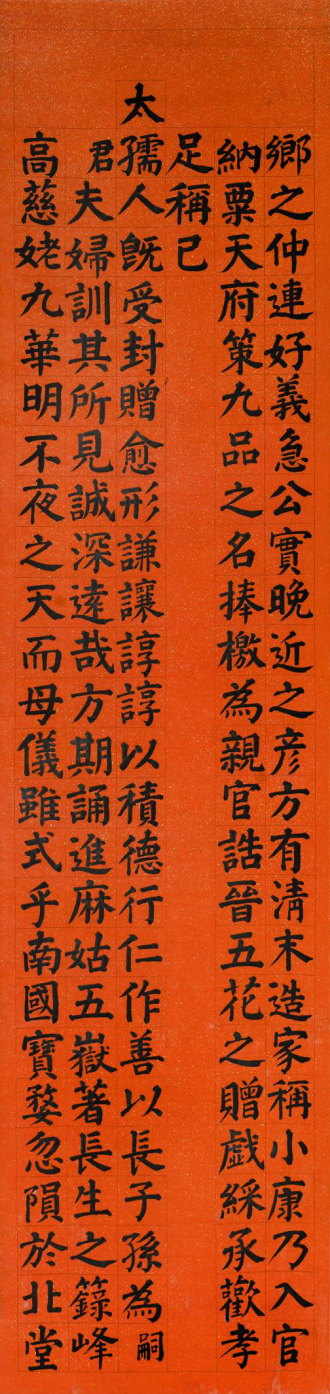 鄉之仲連好義急公實晚近之彥方有清末造家稱小康乃入官
納粟天府策九品之名捧檄為親官誥晉五花之贈戲綵承歡孝
足稱已
太孺人旣受封贈愈形謙讓諄諄以積德行仁作善以長子孫為嗣
君夫婦訓其所見誠深遠哉方期誦進麻姑五嶽著長生之籙峰
高慈姥九華明不夜之天而母儀雖式乎南國寶婺忽隕於北堂